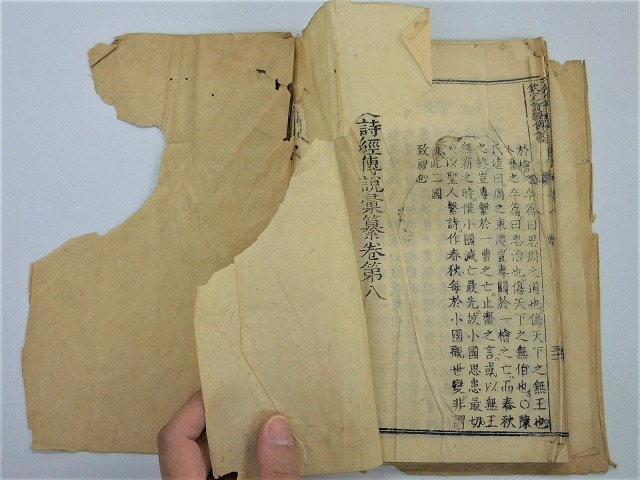 於檜卒篇曰思周之道也傷天下之無王也
曹之卒篇曰思治也傷天下之無伯也○陳
氏遠曰周之東遷豈專關於一檜之亡而春秋
之終豈專繫於一曹之亡止齋之言或以無王
無霸之時惟小國滅亡最先故小國思患最切
以聖人繫詩作春秋每於小國觀世變非謂
此二國
致禍也
詩經傳說彙纂卷第八